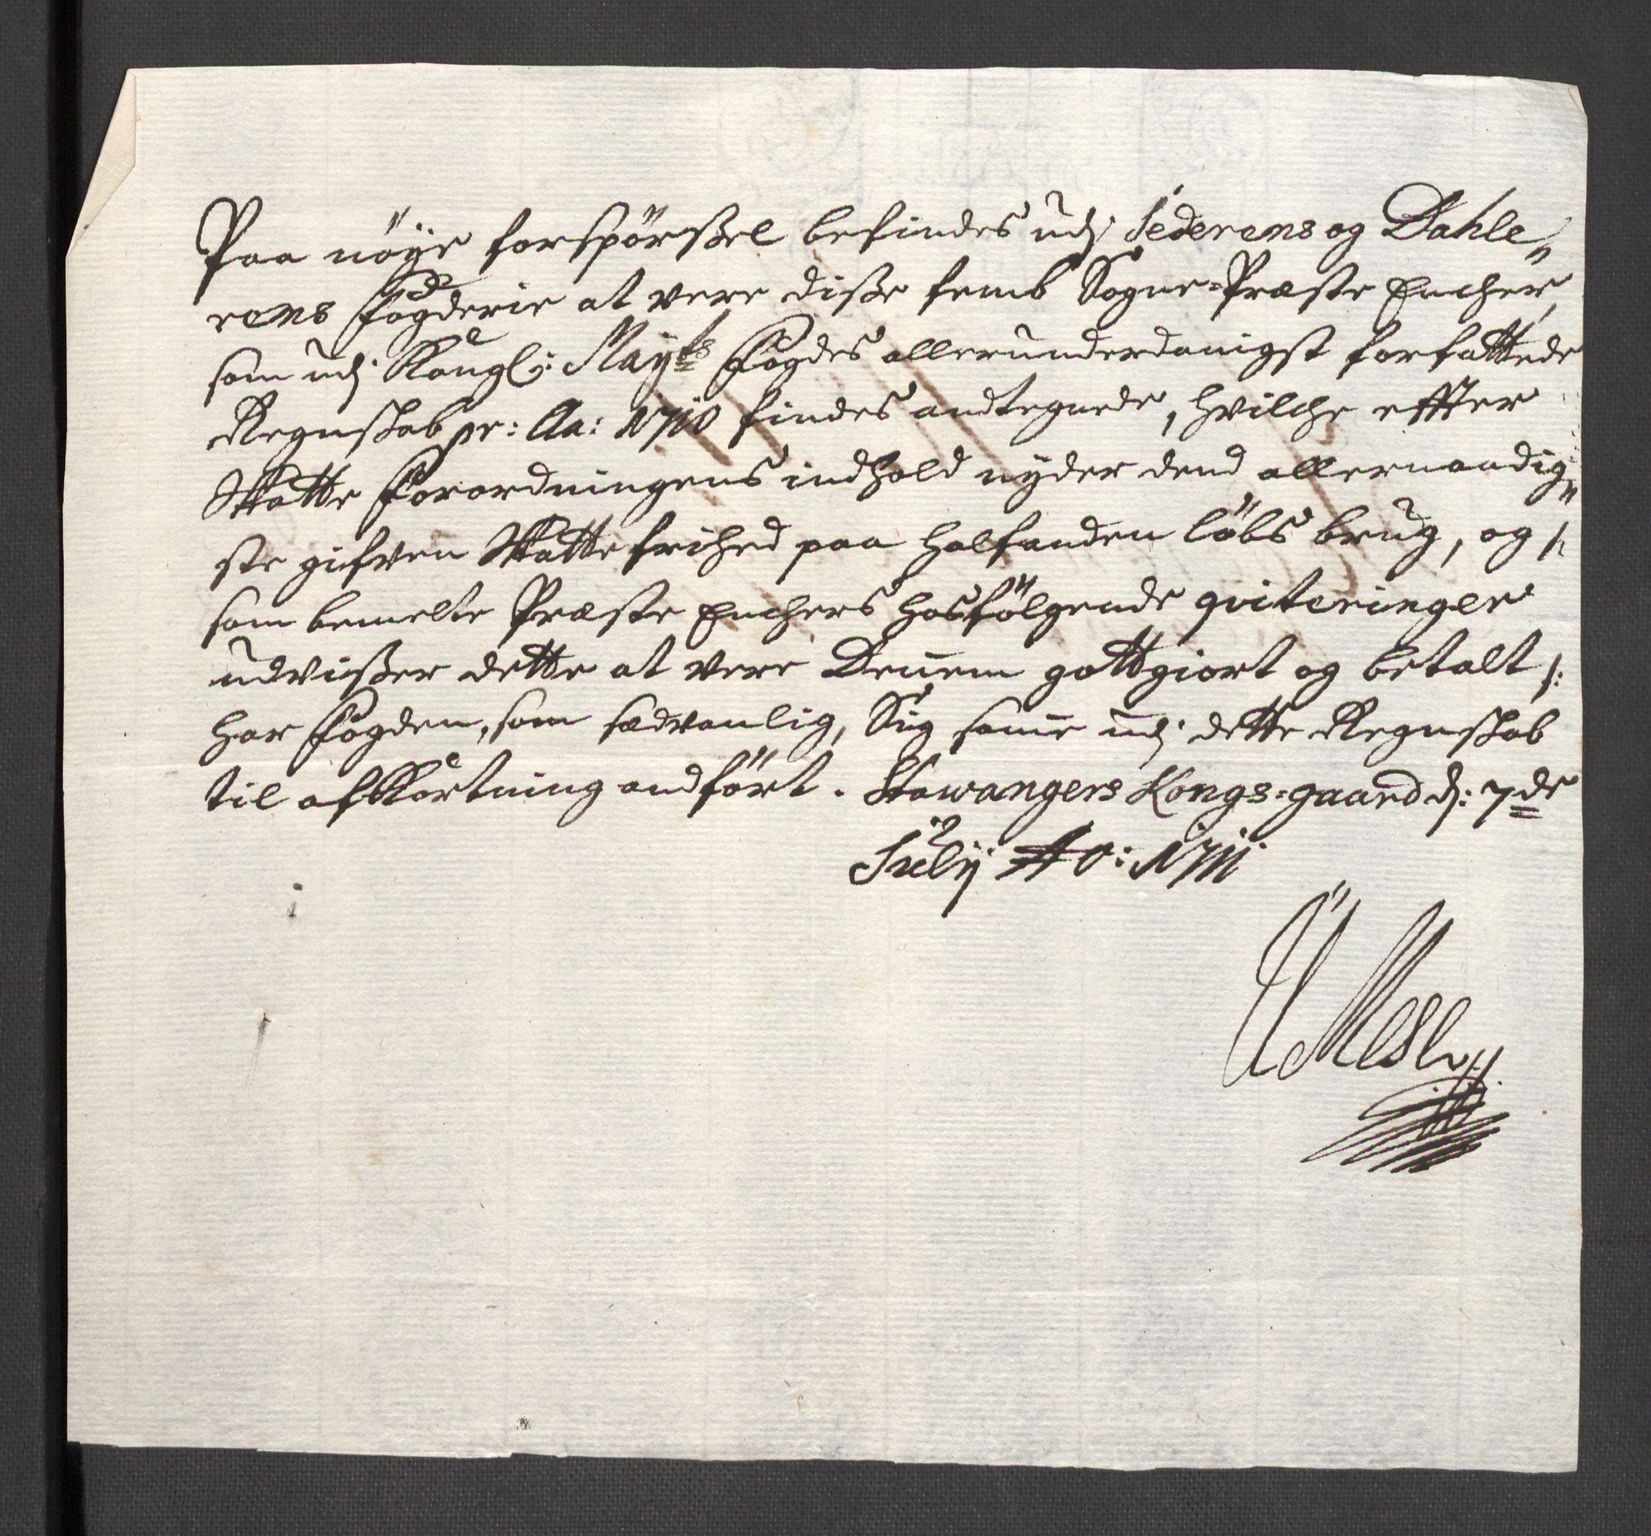 Paa nöye forspörßel befindes udj Jederens og Dahle„
rens fogderie at vere diße femb Sogne-Præste Encher,
som udj Kongl: Mayts fogdes allerunderdanigst forfattede
Regnskab pr: Ao: 1710 findes andtegnede, hvilche effter
Skatte forordningens indhold nyder dend allernaadig„
ste gifven Skatte frihed paa halfanden löbs brug, og /:
som bemelte Præste Enchers hosfölgende qviteringer
udvißer dette at vere Dennem gottgiort og betalt /:
har fogden, som sædvanlig, Sig samme udj dette Regnskab
til afkortning andfört. Stawangers Kongs-gaard d: 7de
July Ao: 1711